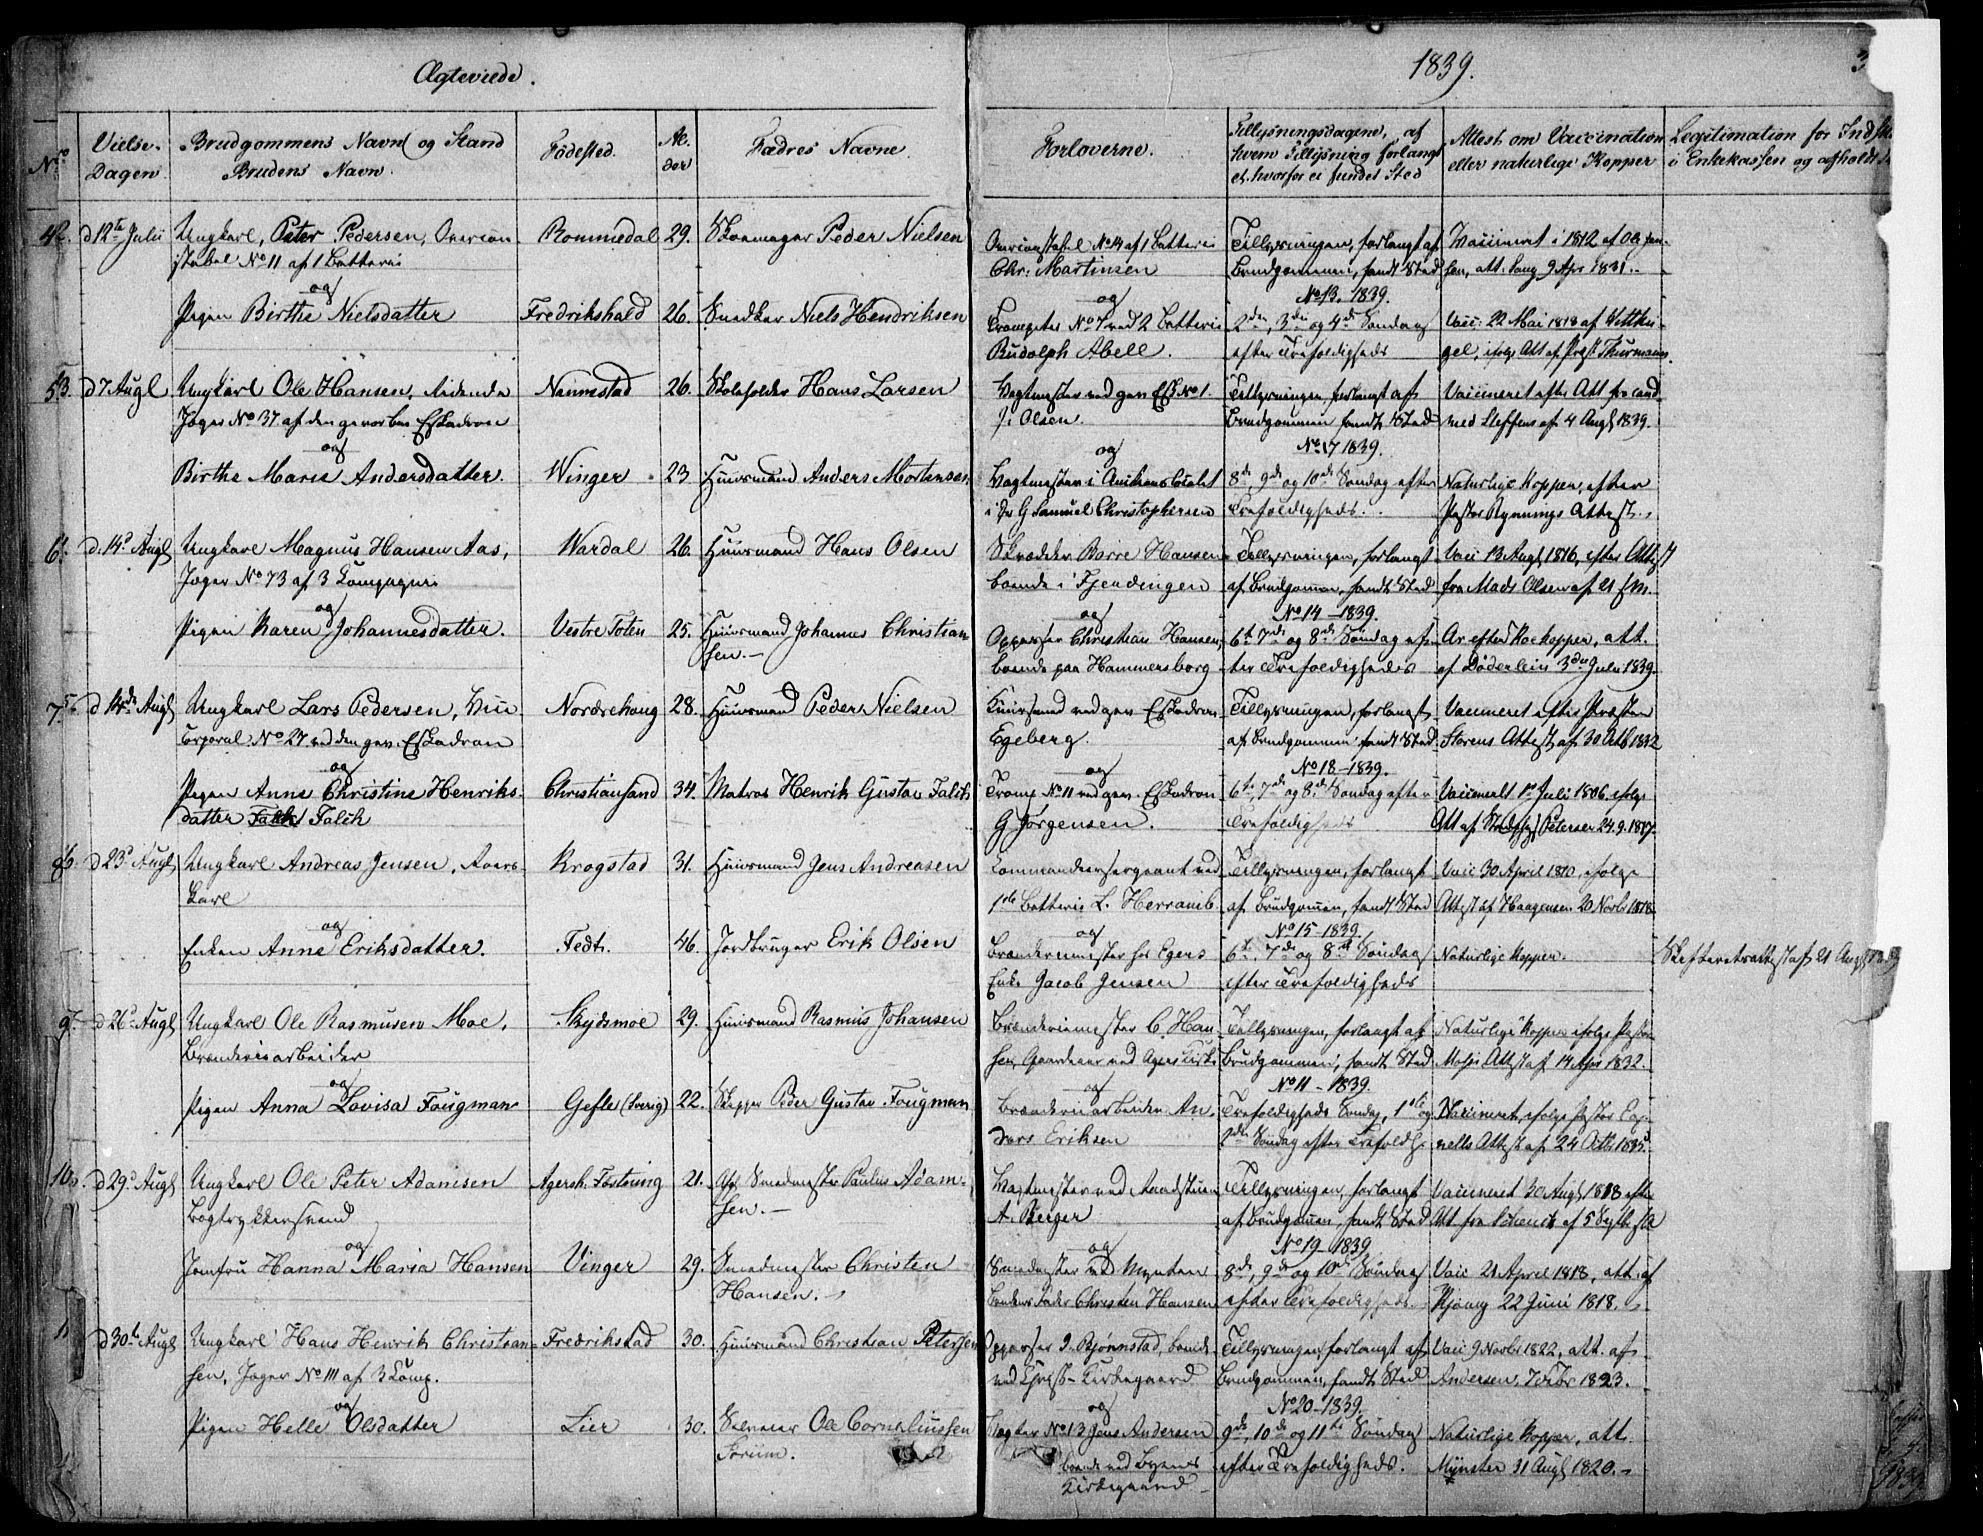 Ægteviede.
No
Vielse-
Dagen
Brudgommens Navn og Stand
Brudens Navn.
Fødested.
Al-
der
Fædres Navne.
42. d 12te Julii Ungkarl, Peter Pedersen, Overcon- Rommedal 29. Skomager Peder Nielsen
stabel No 11 af 1 Batterie
og
Pigen Birthe Nielsdatter Fredrikshald 26. Snedker Niels Hendriksen
53. d 7 Augt Ungkarl Ole Hansen, ridende Nannestad 26. Skoleholder Hans Larsen
Jæger No 37 af den gevorbne Eskadron
og
Birthe Marie Andersdatter. Winger 23. Huusmand Anders Mortensen
6. d. 14de Augt Ungkarl Magnus Hansen Aas, Wardal 26. Huusmand Hans Olsen
Jæger No 73 af 3 Compagnie
og
Pigen Karen Johannesdatter. Vestre Toten 25. Huusmand Johannes Christian-
sen.-
7. d 14de Augt Ungkarl Lars Pedersen, Vice Nordrehoug 28. Huusmand Peder Nielsen
Corporal No 27 ved den gev. Eskadron
og
Pigen Anne Christine Henriks- Christiansand 34. Matros Henrik Gustav Falch
datter Falch
8. d 23de Augt Ungkarl Andreas Jensen, Krogstad 31. Huusmand Jens Andreasen
Karl
og
Enken Anne Eriksdatter. Fedt. 46. Jordbruger Erik Olsen
9. d 26de Augt Ungkarl Ole Rasmusen Moe, Skydsmoe 29. Huusmand Rasmus Johansen
Brænderiearbeider
og
Pigen Anna Lovisa Fougman Gefle (Sverig) 22. Skipper Peder Gustav Fougman
10. d 29de Augt Ungkarl Ole Peter Adamsen Agersh. Fæstning 21. Smedmester Paulus Adam-
Bogtrykkersvend sen.-
og
Jomfru Hanna Maria Hansen Vinger 29. Smedmester Christen
Hansen.
11 d 30te Augt Ungkarl Hans Henrik Christian- Fredrikstad 30. Huusmand Christian Petersen
sen, Jæger No 111 af 3 Comp.
og
Pigen Helle Olsdatter Lier 30. Selveier Ole Corneliussen
Forum.
1839.
3
Forloverne.
Tillysningsdagene, af
hvem Tillysning forlangt
el. hvorfor ei fundet Sted
Attest om Vaccination
eller naturlige Kopper
Legitimation for Ind
i Enkekassen og afholdt
Overconstabel No 14 af 1 Batterie Tillysningen, forlangt af Vaccineret i 1812 af Ole Jen-
Chr. Martinsen Brudgommen, fandt Sted sen, att. 9 Apr 1831.
og No 13. 1839.
Trompeter No 7 ved 2 Batterie 2den, 3die og 4de Søndag Vacc: 22 Mai 1818 af
Rudolph Abell. efter Trefoldigheds ifølge Att. af Præst Thurmann.
Vagtmester ved gev. Esk No 1. Tillysningen forlangt af Vaccineret efter Att. fra cand
J. Olsen. Brudgommen fandt Sted med Steffens af 4 Augt 1839.
og No 17 1839.
Vagtmester i 8de, 9de og 10de Søndag efter Naturlige Kopper, efter
Samuel Christophersen Trefoldigheds. Pastor Attest.
Skrædder Barre Hansen Tillysningen, forlangt Vacc 13 Augt 1816, efter Attest
boende i Fjerdingen af Brudgommen, fandt Sted fra Mads Olsen af
og No 14 - 1839.
Opperser Christian Hansen, 6te 7de og 8de Søndag ef- Ar efter Kokopper, att.
boende paa Hammersborg ter Trefoldigheds af Döderlein 3die Julii 1839.
ved gev. Eskadron Tillysningen, forlangt Vaccineret efter Præsten
Egeberg. af Brudgommen fandt Sted Attest af 30 Octb 1832
og No 18 - 1839.
Tromp. No 11 ved gev. Eskadron 6te, 7de og 8de Søndag efter Vaccineret 1ste Juli 1806. ifølge
G Jørgensen. Trefoldigheds Att af Petersen 24.9.1817.
Commandeersergeant ved Tillysningen, forlangt Vacc 30 April 1810, ifølge
1ste Batterie L. af Brudgommen, fandt Sted Attest af Haagensen 20 Novbr 1818
og No 15 - 1839.
Brænderimester hos Egers 6te 7de og 8de Søndag Naturlige Kopper. Skifteretsattest af 21 Augt 1839
Enke Jacob Jensen efter Trefoldigheds
Brænderimester C. Han- Tillysningen, forlangt af Naturlige Kopper ifølge Pastor
sen, Gaardeier ved Agers Kirke Brudgommen, fandt Sted Attest af 14 Apr 1832.
og No 11 - 1839.
Brænderiarbeider An- Trefoldigheds Søndag, 1ste og Vaccineret, ifølge Pastor
ders Eriksen 2den Søndag efter Trefoldh. Attest af 24 Octb. 1835.
Vagtmester ved Tillysningen, forlangt Vaccineret 30 Augt 1818 efter
A. Berger af Brudgommen, fandt Sted Att fra Schenck af 5
og No 19 - 1839.
Smedmester ved Mynten 8de, 9de og 10de Søndag Vacc 21 April 1818, att. af
Brudens Fader Christen Hansen efter Trefoldigheds 22 Juni 1818.
Opperser J. Bjørnstad, boende Tillysningen forlangt af Vacc 9 Novbr 1822, att. af
ved Christ- Kirkegaard Brudgommen, fandt Sted Andersen 7 Febr 1823.
og No 20 - 1839.
No 13 Jens Andersen 9de, 10de og 11te Søndag Naturlige Kopper, att.
boende ved Byens efter Trefoldigheds. Mynster 31 Augt 1820.
Kirkegaard
1839